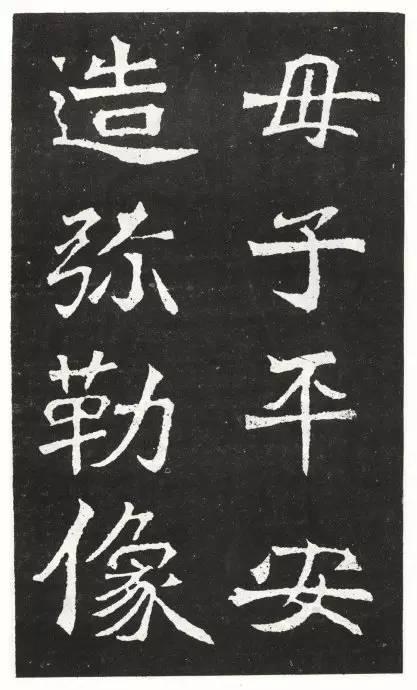 母子平安
造弥勒像